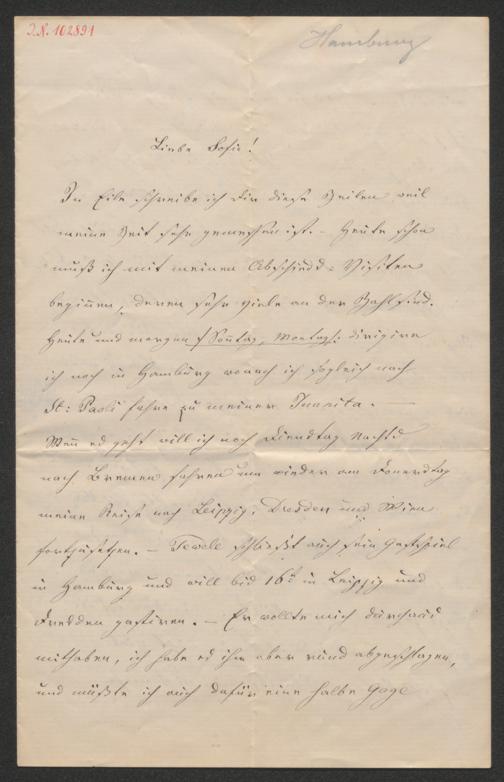 I.N. 102891
Hamburg
Liebe Sofie!
In Eile schreibe ich Dir diese Zeilen weil
meine Zeit sehr gemessen ist. – Heute schon
muß ich mit meinen Abschieds-Visiten
beginnen, deren sehr viele an der Zahl sind.
Heute und morgen /: Sontag, Montag :/ dirigire
ich noch in Hamburg wonach ich sogleich nach
St: Pauli fahre zu meiner Juanita. –
Wenn es geht will ich noch Dienstag Nachts
nach Bremen fahren um wieder am Donerstag
meine Reise nach Leipzig, Dresden und Wien
fortzusetzen. – Tewele schließt auch sein Gastspiel
in Hamburg und will bis 16t in Leipzig und
Dresden gastiren. – Er wollte mich durchaus
mithaben, ich habe es ihm aber rund abgeschlagen,
und müßte ich auch dafür eine halbe Gage